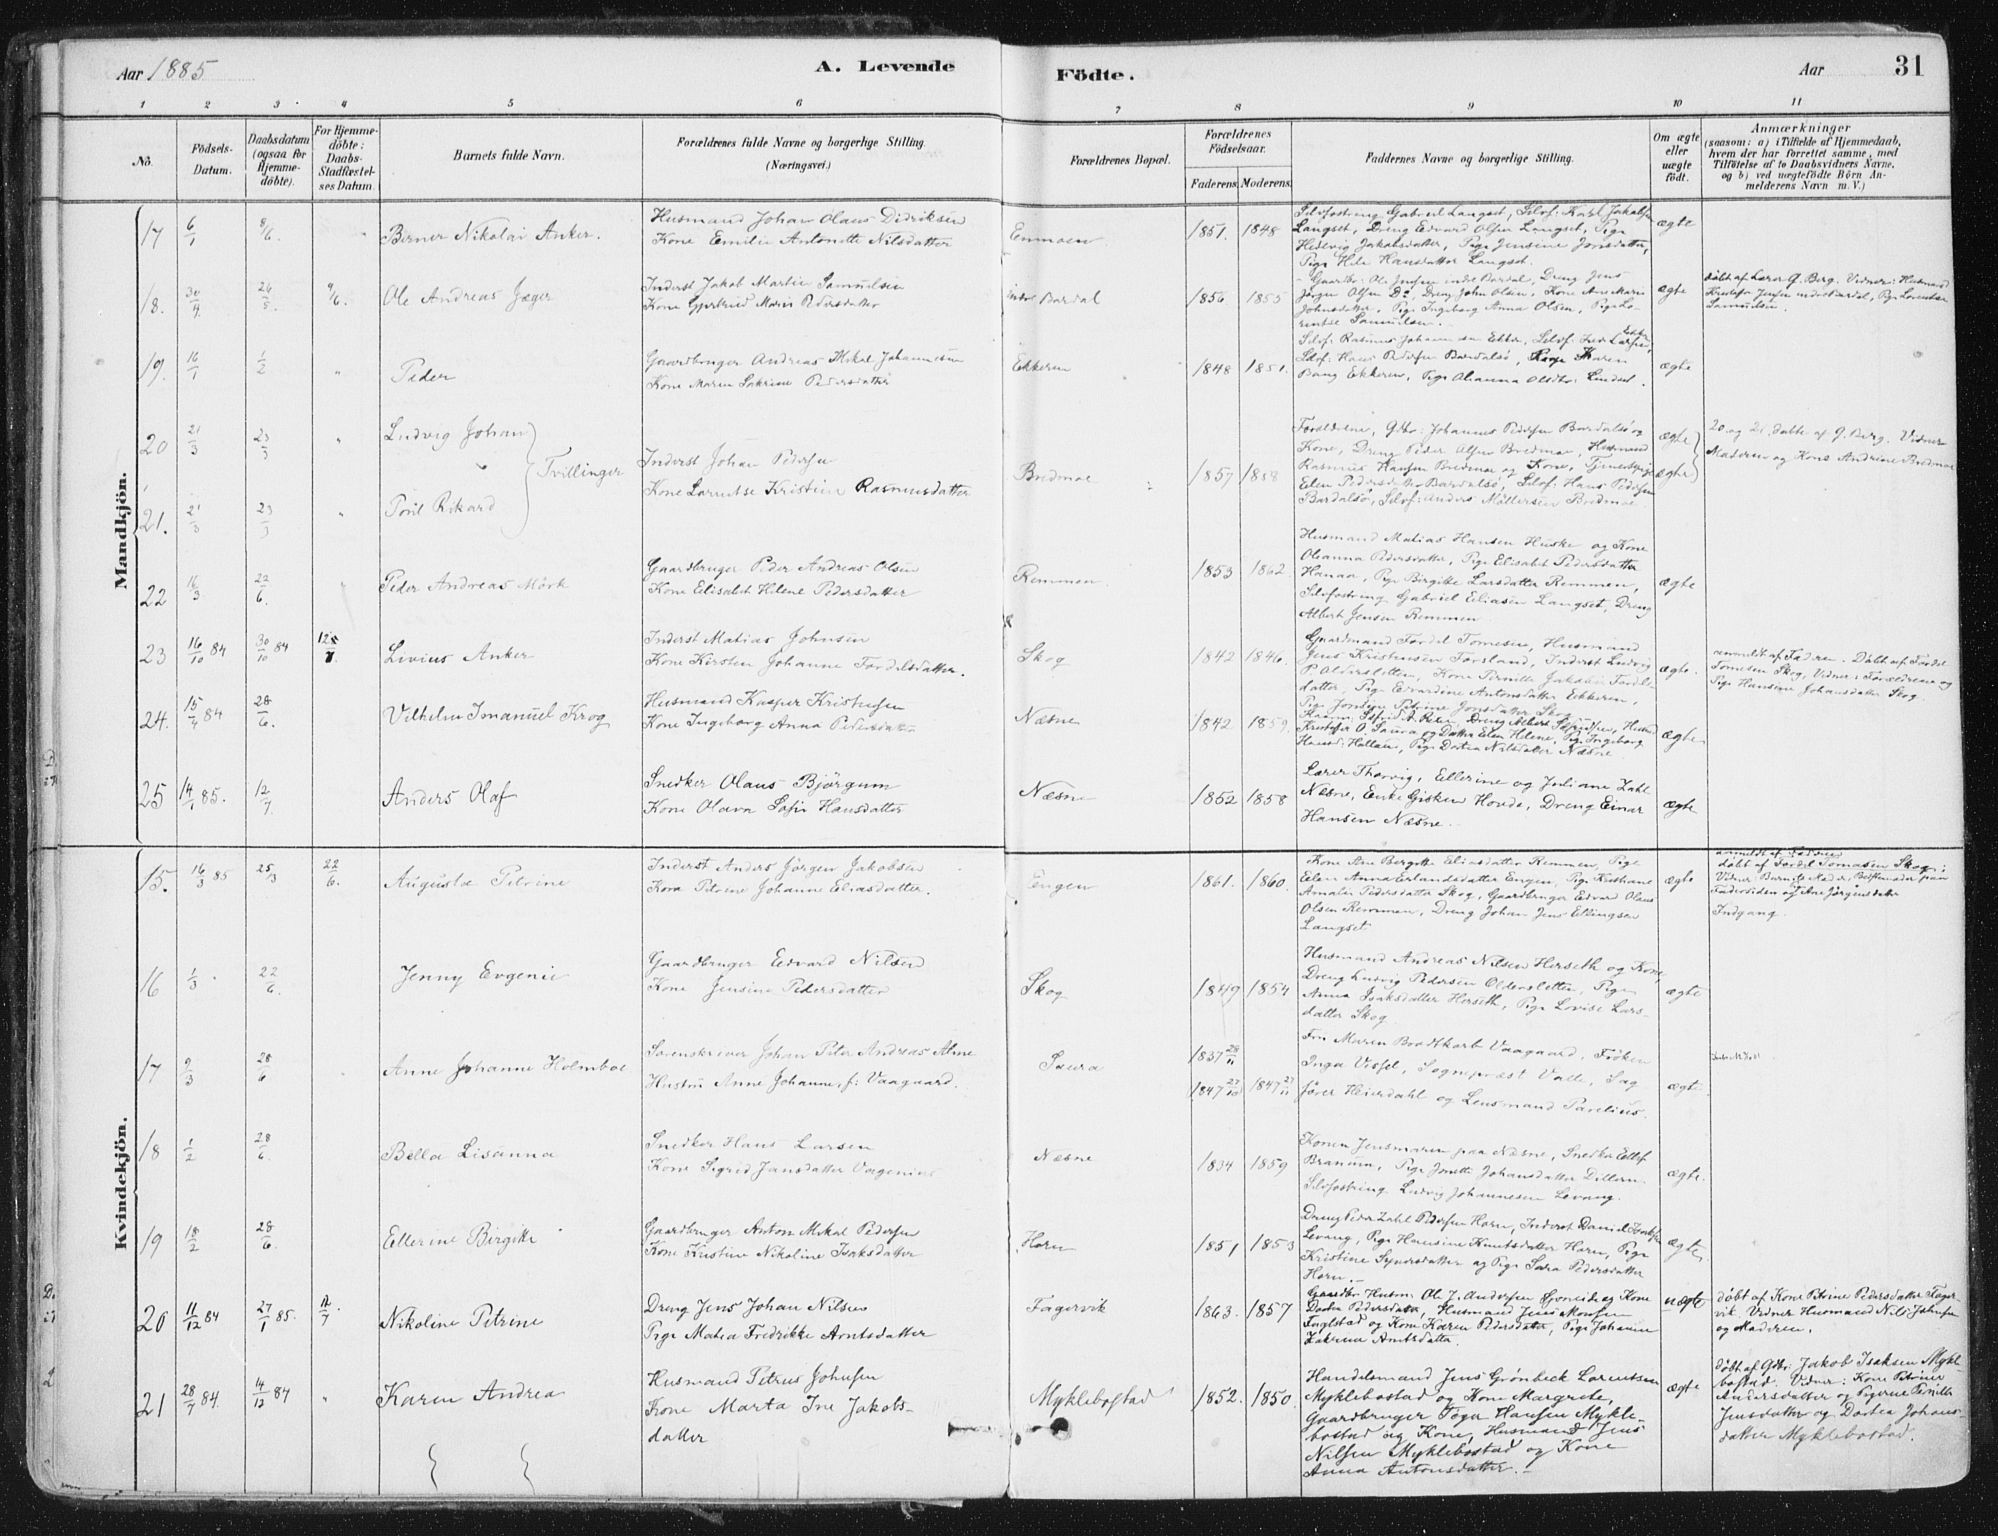 Aar 1885
A. Levende
Födte.
Aar
31
1 2 3 4 5 6 7 8 9 10 11
No.
Födsels-
Datum.
Daabsdatum
(ogsaa for
Hjemme-
döbte).
For Hjemme-
döbte:
Daabs-
Stadfæstel-
ses Datum.
Barnets fulde Navn.
Forældrenes fulde Navne og borgerlige Stilling.
(Næringsvei.)
Forældrenes Bopæl.
Forældrenes
Födselsaar.
Faderens. Moderens.
Faddernes Navne og borgerlige Stilling.
Om ægte
eller
uægte
født.
Anmærkninger
(saasom: a) i Tilfælde af Hjemmedaab,
hvem der har forrettet samme, med
Tilföielse af to Daabsvidners Navne,
og b) ved uægtefödte Börn An-
melderens Navn m. V.)
Mandkjön.
17 6/1 8/6. Berner Nikolai Anker.
Husmand Johan Olaus Didriksen
Kone Emilie Antonette Nilsdatter
1851. 1848
Langset, Dreng Edvard Olsen Langset, Pige
Hedevig Jakobsdatter, Pige Jensine Jonsdatter,
Hansdatter Langset.
ægte
18. 30/4 26/5. 9/6. Ole Andreas Jæger
Inderst Jakob Martin Samuelsen
Kone Gjertrud Maria Pedersdatter
indre Bardal
1856 1855
Jørgen Olsen Do, Dreng John Olsen, Kone Ane Maria
Johnsdatter, Pige Ingeborg Anna Olsen, Pige Lo-
rentse Samuelsen.
ægte
døbt af Lærer G. Berg. Vidner: Husmand
Kristofer Jensen indre Bardal, Pige Lorentse
Samuelsen.
19. 16/1 1/2 " Peder
Gaardbruger Andreas Mikal Johannesen
Kone Maren Sakrine Pedersdatter
Ekkeren
1848 1851.
Selvf: Hans Pedersen Bardalsø, Pige Karen
Bang Ekkeren, Pige Oleanna Olsdtr. Lindset.
ægte
20 21/3 23/3 " Ludvig Johan
Tvillinger
21. 21/3 23/3 " Povl Rikard
Inderst Johan Pedersen
Kone Lorentse Kristine Rasmusdatter
Bredmoe
1857 1858
Forældrene, Gbr: Johannes Pedersen Bardalsø og
Kone, Dreng Peder Olsen Bredmoe, Husmand
Rasmus Hansen Bredmoe og Kone, Tjenestepige
Elen Pedersdatter Bardalsø, Selvf: Hans Pedersen
Bardalsø, Selvf: Anders Møllersen Bredmoe.
ægte
ægte
20. og 21. døbte af G. Berg. Vidner
Maderen og Kone Andrine Bredmoe
22 16/3 22/6. " Peder Andreas Mörk
Gaardbruger Peder Andreas Olsen
Kone Elisabet Helene Pedersdatter
Remmen.
1853 1862
Husmand Matias Hansen Huske og Kone
Oleanna Pedersdatter, Pige Elisabet Pedersdatter
Hanaa, Pige Birgitte Larsdatter Remmen,
Selvfostring Gabriel Eliasen Langset, Dreng
Albert Jensen Remmen.
ægte
23 16/10 84 30/10 84 Livius Anker
Inderst Matias Johnsen
Kone Kirsten Johanne Tordelsdatter.
Skog
1842 1846.
Gaardmand Tordel Tomesen, Husmand
Jens Kristensen Forsland, Inderst Ludvig
P. Oldersletten, Kone Pernille Jakobin Tordels-
datter, Pige Edvardine Antonsdatter Ekkeren,
Pige Jonsine Petrine Jonsdatter Skog
ægte.
anmeldt af Faderen. Døbt af Tordel
Tomesen Skog, Vidner: Forældrene og
Pige Hansine Johansdatter Skog
24. 15/4 84 28/6. Vilhelm Imanuel Krog
Husmand Kasper Kristensen
Kone Ingeborg Anna Pedersdatter
Næsne
1842 1859.
Kristofer O. Saura og Datter Elen Helene, Pige Ingeborg
Pige Dortea Nilsdatter Næsne
ægte
25 14/1 85. 12/7 Anders Olaf
Snedker Olaus Bjørgum
Kone Olava Sofie Hansdatter
Næsne
1852 1858
Lærer Thorvig, Ellerine og Juliane Zahl
Næsne, Enke Gisken Hovde, Dreng Einar
Hansen Næsne.
ægte
Kvindekjön.
15. 16/3 85 25/3 22/6. Augusta Petrine
Inderst Anders Jörgen Jakobsen
Kone Petrine Johanne Eliasdatter.
Engen
1861. 1860.
Kone Ane Bergitte Eliasdatter Remmen, Pige
Elen Anna Erlandsdatter Engen, Pige Kristiane
Amalie Pedersdatter Skog, Gaardbruger Edvard Olaus
Olsen Remmen, Dreng Johan Jens Ellingsen
Langset
ægte
anmeldt af Faderen
døbt af Tordel Tomasen Skog;
Vidner: Barnets Moder, Bestemoder paa
Fadersiden og Ane Jørgensdatter
Indgang.
16 1/3 22/6. Jenny Evgenie
Gaardbruger Edvard Nilsen
Kone Jensine Pedersdatter
Skog
1849 1854
Husmand Andreas Nilsen Herseth og Kone,
Dreng Ludvig Pedersen Oldersletten, Pige
Anna Isaksdatter Herseth, Pige Lovise Lars-
datter Skog
ægte
17 9/3 28/6 Anne Johanne Holmboe
Sorenskriver Johan Peter Andreas Alme
Hustru Anne Johanne, f: Vaagaard.
Saura
1837 28/11
1847 27/10 1847 27/11
Fru Maren Vaagaard, Frøken
Inga Vissel, Sogneprest Valle, Sag
fører Heierdahl og Lensmand Parelius.
ægte.
18 1/2 28/6 Bella Lisanna
Snedker Hans Larsen
Kone Sigrid Jansdatter
Næsne
1834 1859
Konen Jensmaren paa Næsne, Snedker Edlef
Branum, Pige Jonette Johansdatter Dillern
Selvfostring Ludvig Johannesen Levang.
ægte.
19 18/2 28/6. Ellerine Birgitte
Gaardbruger Anton Mikal Pedersen
Kone Kristine Nikoline Isaksdatter
Horn
1851 1853
Dreng Peder Zahl Pedersen Horn, Inderst Daniel Isaksen
Levang, Pige Hansine Knutsdatter Horn, Pige
Kristine Sjursdatter og Pige Sara Pedersdatter
Horn.
ægte
20 11/12 84 27/1 85. 12/7. Nikoline Petrine
Dreng Jens Johan Nilsen
Pige Matea Fredrikke Arntsdatter
Fagervik
1863. 1857
Gaardbr. Husm. Ole J. Andersen Sjoneide og Kone
Dortea Pedersdatter, Husmand Jens Monsen
Inglstad og Kone Karen Pedersdatter, Pige Johanne
Zakrine Arntsdatter.
uægte
døbt af Kone Petrine Pedersdatter Fager-
vik Vidner Husmand Nils Johnsen
og Moderen.
21 28/7 84. 14/12 84 " Karen Andrea
Husmand Petrus Johnsen
Kone Marta Ine Jakobs-
datter
Myklebostad
1852. 1850.
Handelsmand Jens Grønbeck Lorentsen
Myklebostad og Kone Margrete,
Gaardbruger Tøger Hansen Mykle-
bostad og Kone, Husmand Jens
Nilsen Myklebostad og Kone
Anna Antonsdatter.
ægte
døbt af Gdbr: Jakob Isaksen Mykl
bostad. Vidner: Kone Petrine
Andersdatter og Pigerne Pernille
Jensdatter og Dortea Johans-
datter Myklebostad.